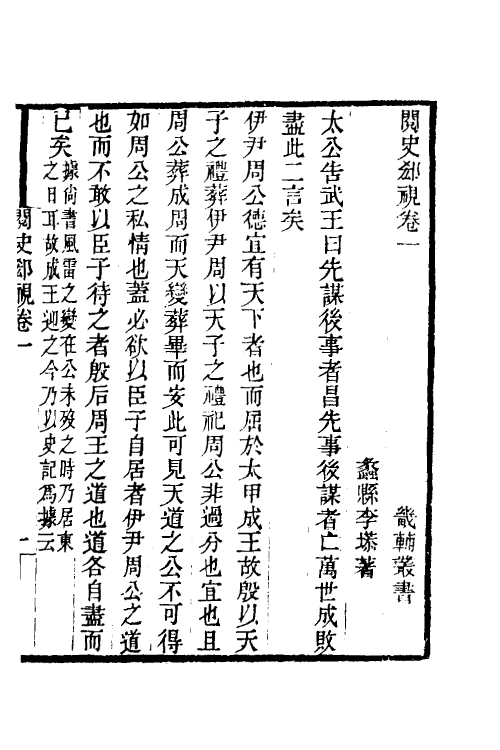 閱史郄視卷一 畿輔叢書
蠡縣李塨著
太公告武王曰先謀後事者昌先事後謀者亡萬世成敗
盡此二言矣
伊尹周公德宜有天下者也而屈於太甲成王故殷以天
子之禮葬伊尹周以天子之禮祀周公非過分也宜也且
周公葬成周而天變葬畢而安此可見天道之公不可得
如周公之私情也蓋必欲以臣子自居者伊尹周公之道
也而不敢以臣子待之者殷后周王之道也道各自盡而
已矣據尙書風雷之變在公未歿之時乃居東
之日耳故成王迎之今乃以史記為據云
閱史郄視卷一 一